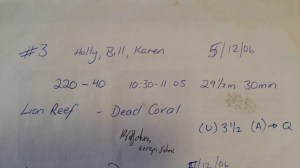 #3 Holly, Bill, Karen 5/12/06
220-40 10:30-11.05 29½m 30min
Lion Reef - Dead Coral
(U) 3½ (A) → Q
/12/06